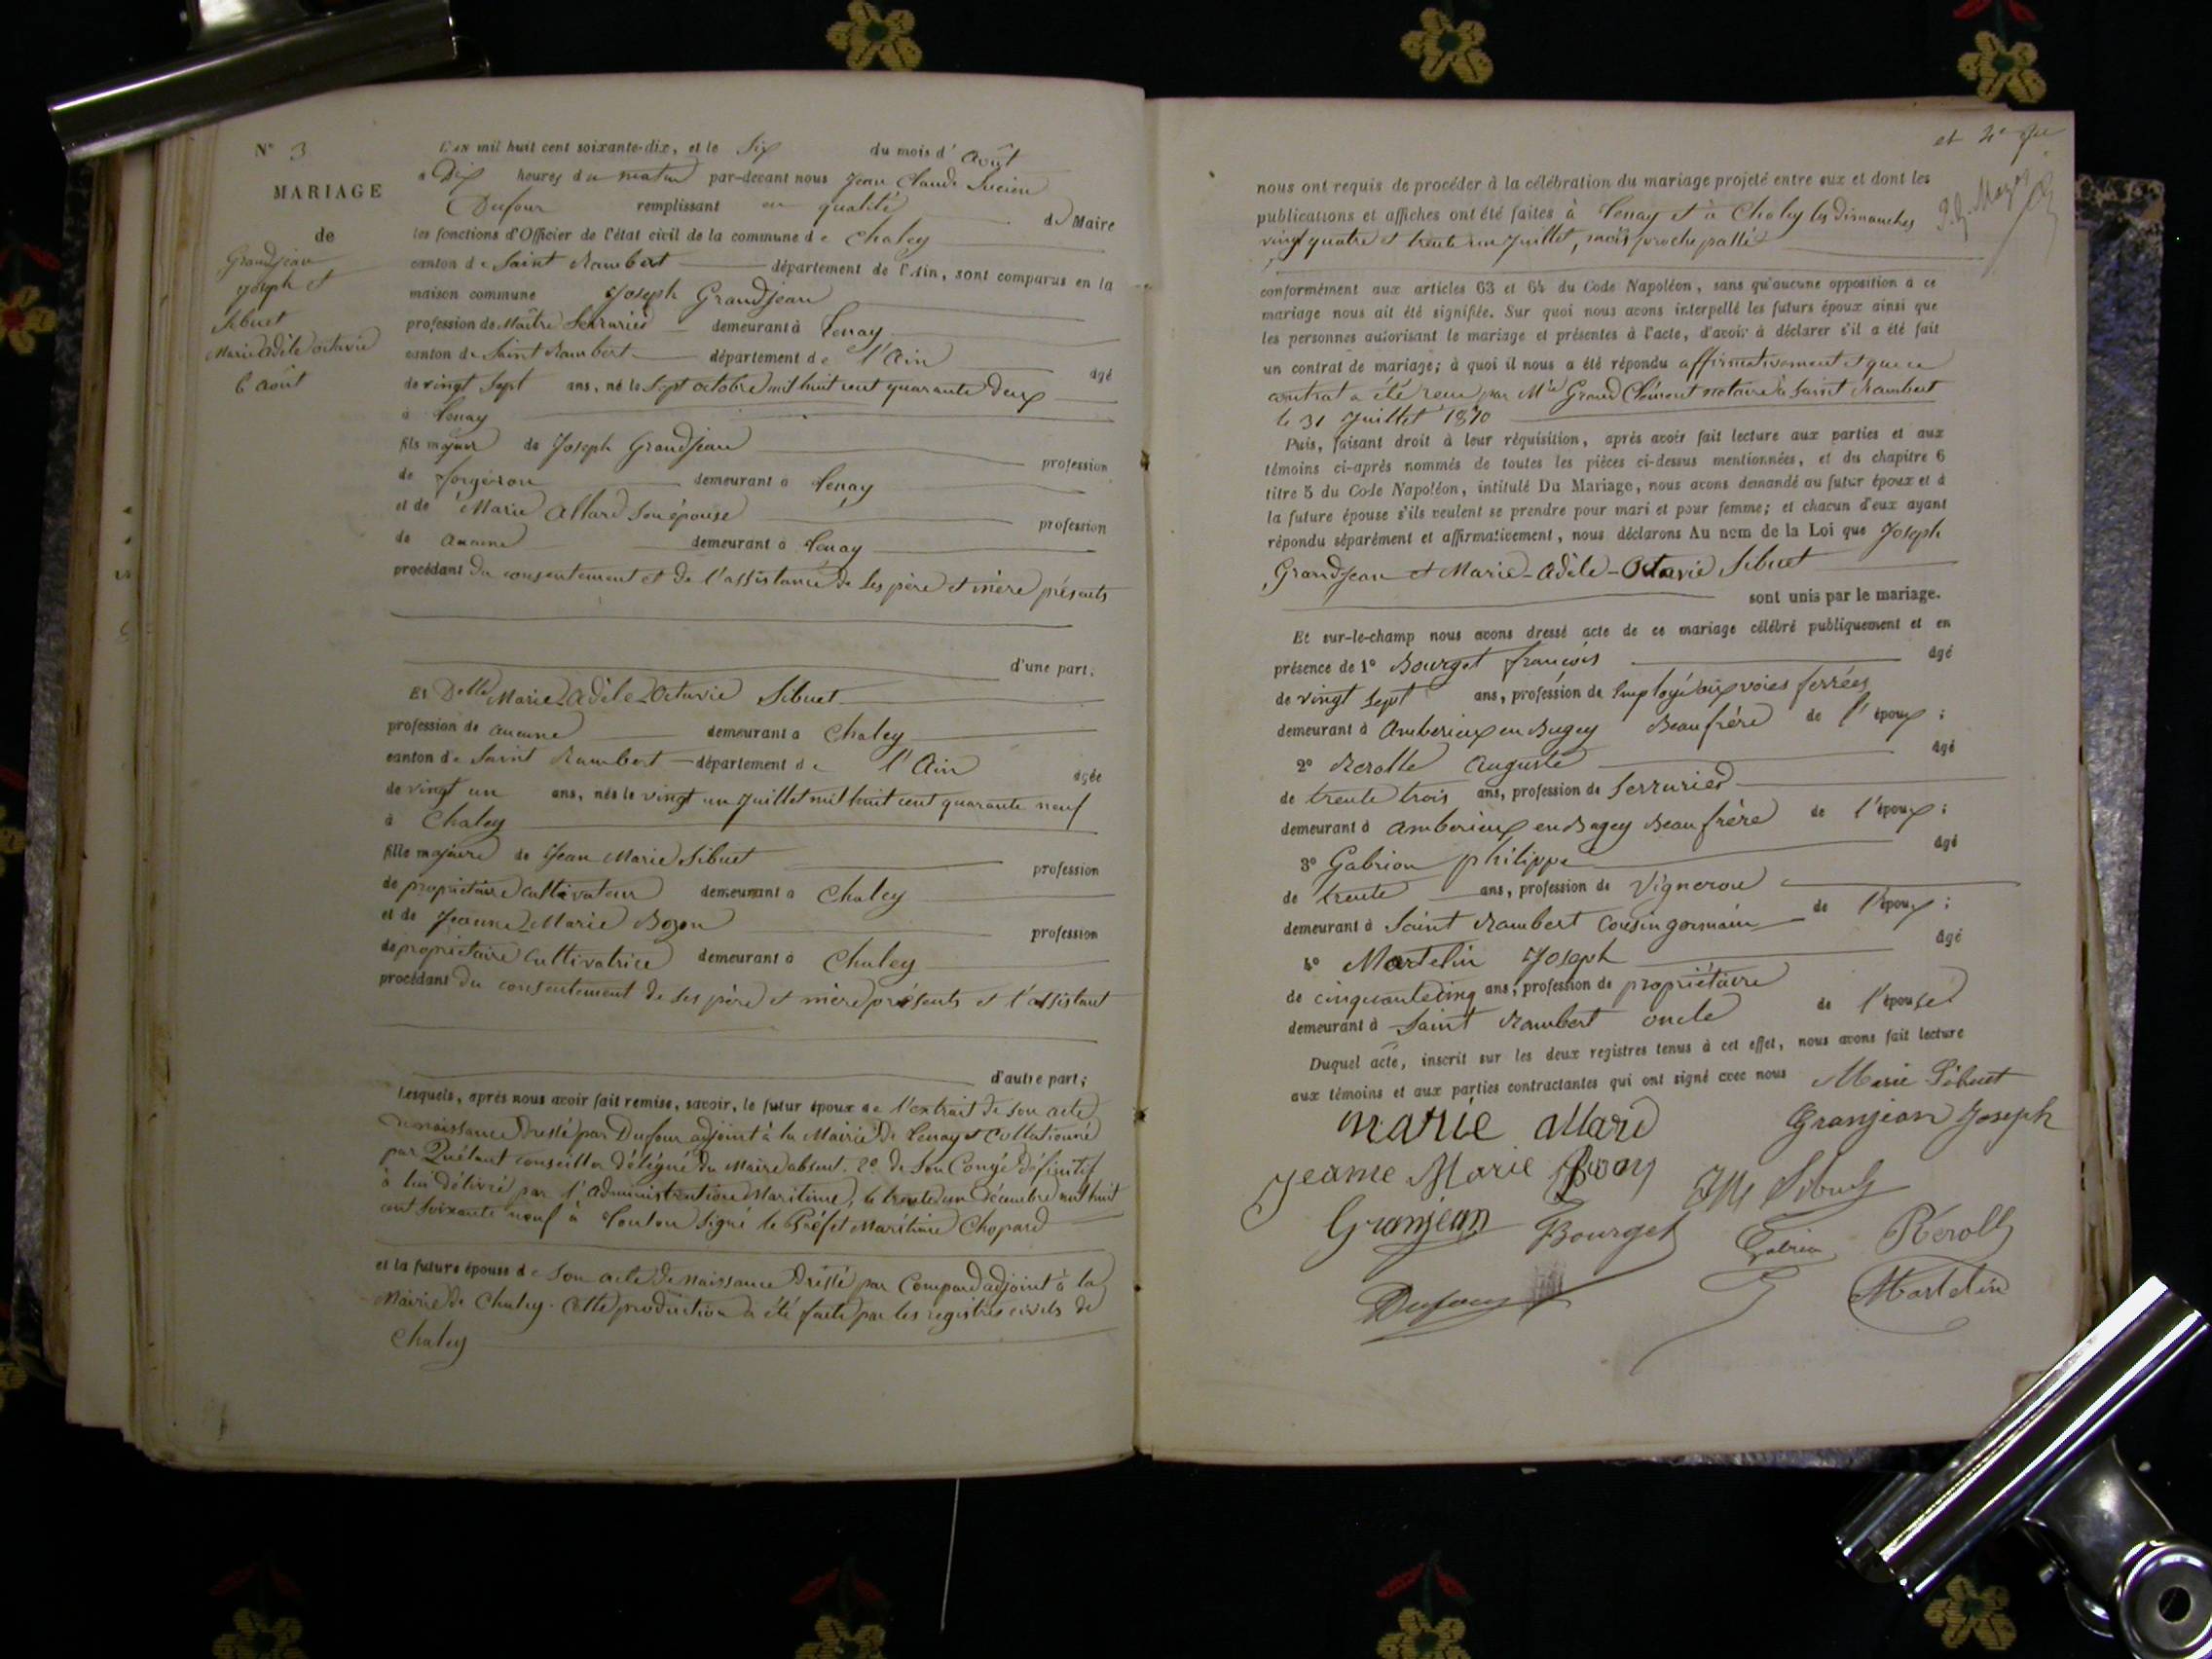 N° 3
MARIAGE
de
Grandjean
Joseph et
Sibuet
Marie Adèle Octavie
6 août
L'an mil huit cent soixante-dix, et le Six du mois d' Août
à Dix heures du matin par-devant nous Jean Claude Lucien
Dufour remplissant en qualité de Maire
les fonctions d'Officier de l'état civil de la commune de Chaley
canton de Saint Rambert département de l'Ain, sont comparus en la
maison commune Joseph Grandjean
profession de Maître Serrurier demeurant à Tenay
canton de Saint Rambert département de l'Ain âgé
de vingt sept ans, né le Sept octobre mil huit cent quarante deux
à Tenay
fils majeur de Joseph Grandjean profession
de forgeron demeurant à Tenay
et de Marie Allard son épouse profession
de aucune demeurant à Tenay
procédant du consentement et de l'assistance de ses père et mère présents
d'une part;
Et Delle Marie-Adèle-Octavie Sibuet
profession de aucune demeurant à Chaley
canton de Saint Rambert département de l'Ain âgée
de vingt un ans, née le vingt un Juillet mil huit cent quarante neuf
à Chaley
fille majeure de Jean Marie Sibuet profession
de propriétaire cultivateur demeurant à Chaley
et de Jeanne-Marie Bozon profession
de propriétaire cultivatrice demeurant à Chaley
procédant du consentement de ses père et mère présents et l'assistant
d'autre part;
Lesquels, après nous avoir fait remise, savoir, le futur époux de l'extrait de son acte
de naissance dressé par Dufour adjoint à la Mairie de Tenay et collationné
par Quétant conseiller délégué du Maire absent. 2° de Son Congé définitif
à lui délivré par l'Administration Maritime, le trente un décembre mil huit
cent soixante neuf à Toulon Signé le Préfet Maritime Chopard
et la future épouse de Son acte de Naissance dressé par Compard adjoint à la
Mairie de Chaley. Cette production a été faite par les registres civils de
Chaley
et 4e
nous ont requis de procéder à la célébration du mariage projeté entre eux et dont les
publications et affiches ont été faites à Tenay et à Chaley les dimanches
vingt quatre et trente un Juillet, mois proche passé
conformément aux articles 63 et 64 du Code Napoléon, sans qu'aucune opposition à ce
mariage nous ait été signifiée. Sur quoi nous avons interpellé les futurs époux ainsi que
les personnes autorisant le mariage et présentes à l'acte, d'avoir à déclarer s'il a été fait
un contrat de mariage; à quoi il nous a été répondu affirmativement et que ce
contrat a été reçu par Mtre Grand Clément notaire à Saint Rambert
le 31 Juillet 1870
Puis, faisant droit à leur réquisition, après avoir fait lecture aux parties et aux
témoins ci-après nommés de toutes les pièces ci-dessus mentionnées, et du chapitre 6
titre 5 du Code Napoléon, intitulé Du Mariage, nous avons demandé au futur époux et à
la future épouse s'ils veulent se prendre pour mari et pour femme; et chacun d'eux ayant
répondu séparément et affirmativement, nous déclarons Au nom de la Loi que Joseph
Grandjean et Marie-Adèle-Octavie Sibuet
sont unis par le mariage.
Et sur-le-champ nous avons dressé acte de ce mariage célébré publiquement et en
présence de 1° Bourget françois âgé
de vingt sept ans, profession de Employé aux voies ferrées
demeurant à Amberieux en Bugey Beau frère de l'époux;
2° Rerolle Auguste âgé
de trente trois ans, profession de Serrurier
demeurant à Amberieux en Bugey Beau frère de l'époux;
3° Gabrion philippe âgé
de trente ans, profession de Vigneron
demeurant à Saint Rambert Cousin germain de l'époux;
4° Martelin Joseph âgé
de cinquante cinq ans, profession de propriétaire
demeurant à Saint Rambert oncle de l'épouse
Duquel acte, inscrit sur les deux registres tenus à cet effet, nous avons fait lecture
aux témoins et aux parties contractantes qui ont signé avec nous Marie Sibuet
Marie Allard Granjean Joseph
Jeanne Marie Bozon JM Sibuet
Granjean Bourget Gabrion Rérolle
Dufour Martelin